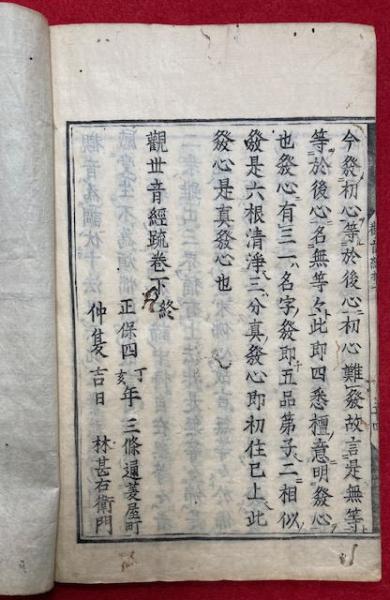 今發初心等於後心初心難發故言是無等
等於後心名無等々此即四悉檀意明發心
也發心有三一名字發即五品第子二相似
發是六根清淨三分真發心即初住已上此
發心是真發心也
觀世音經疏卷下終
正保四丁亥年三條通菱屋町
仲夏吉日 林甚右衛門